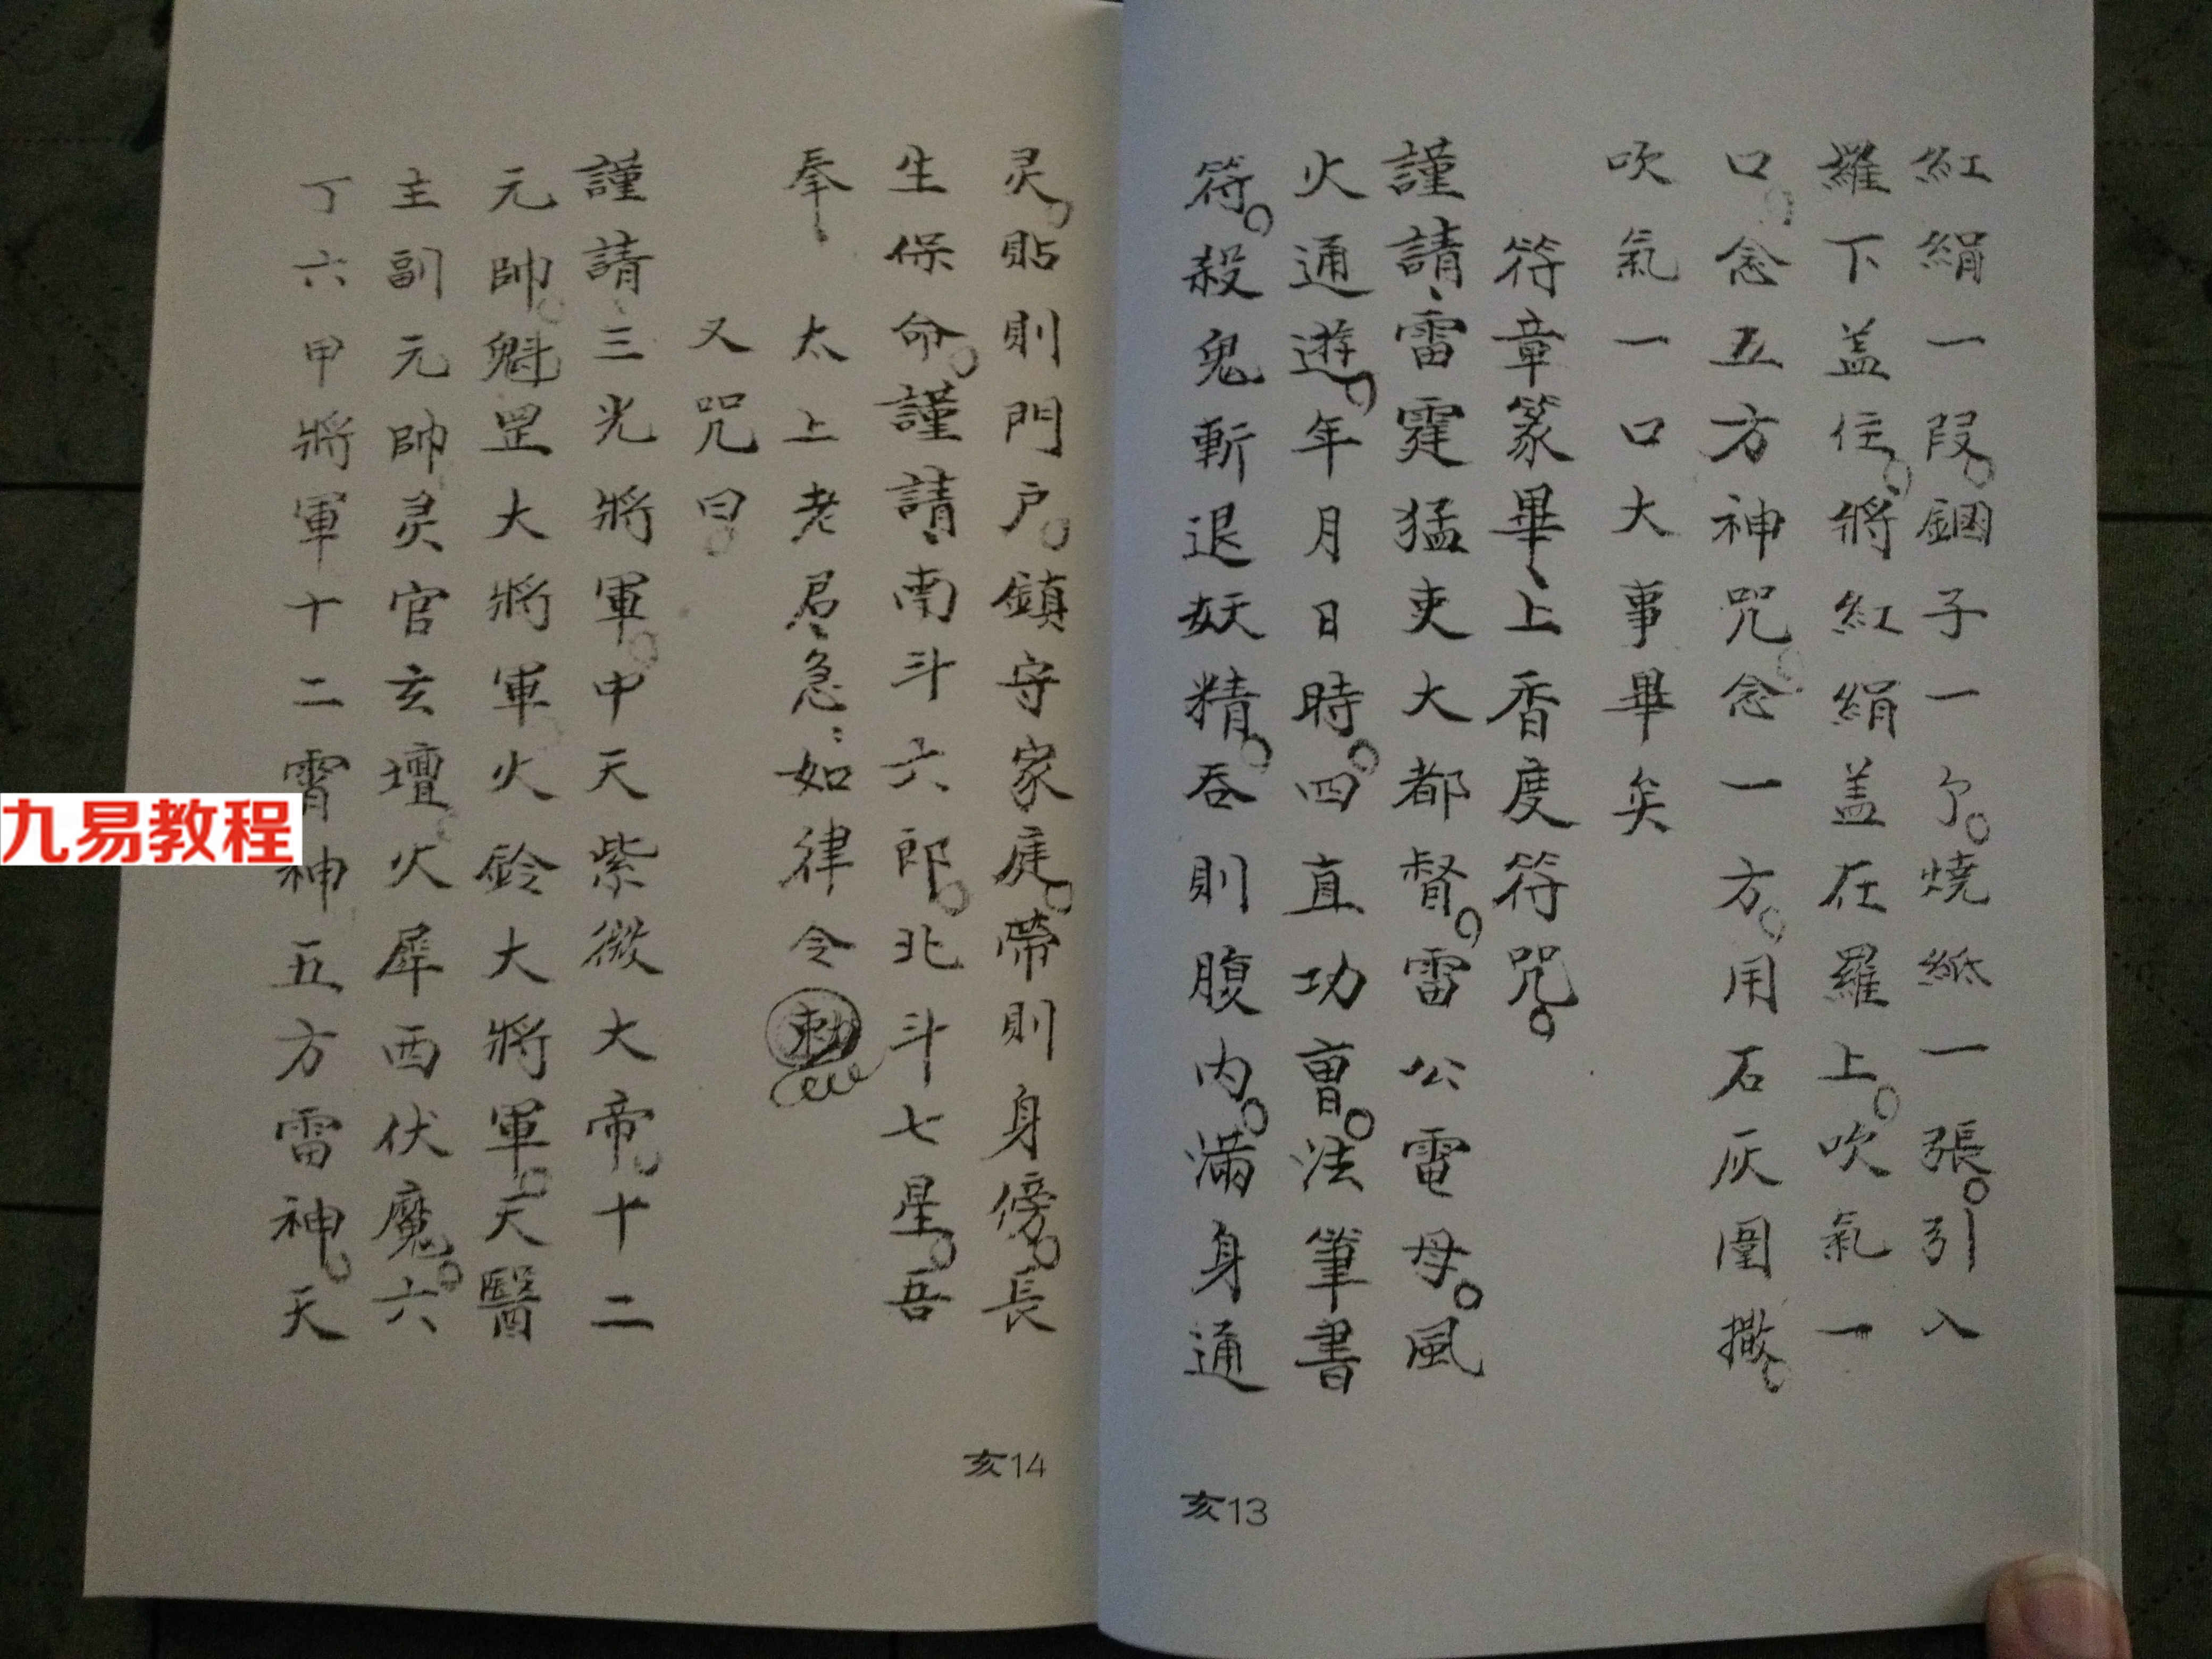 紅絹一段。錮子一个。燒紙一張。引入
羅下盖住。將紅絹盖在羅上。吹氣一
口。念五方神咒。念一方。用石灰圍撒。
吹氣一口大事畢矣
符章篆畢、上香度符咒。
謹請、雷霆猛吏大都督。雷公電母。風
火通遊。年月日時。四直功曹。法筆書
符。殺鬼斬退妖精。吞則腹内。滿身通
亥13
灵。貼則門户。鎮守家庭。帶則身傍。長
生保命。謹請、南斗六郎。北斗七星。吾
奉 太上老君、急:如律令 勅
又咒曰。
謹請、三光將軍。中天紫微大帝。十二
元帥。魁罡大將軍火鈴大將軍。天醫
主副元帥灵官玄壇。火犀西伏魔。六
丁六甲將軍十二霄神五方雷神。天
亥14
九易教程